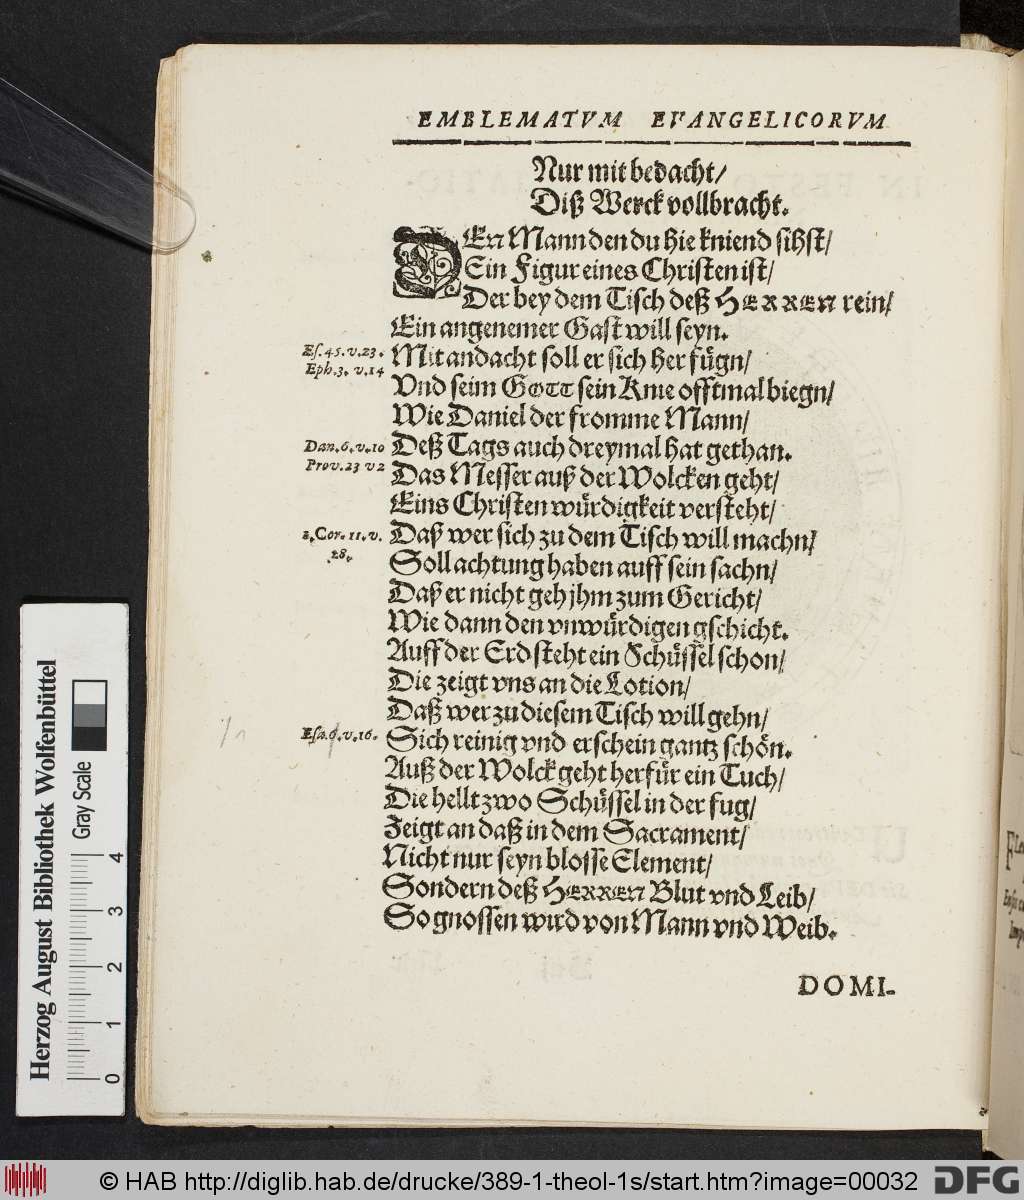 EMBLEMATVM EVANGELICORVM
Nur mit bedacht/
Diß Werck vollbracht.
DEn Mann den du hie kniend sihst/
Ein Figur eines Christen ist/
Der bey dem Tisch deß HERREN rein/
Ein angenemer Gast will seyn.
Es. 45. v. 23.
Eph. 3. v. 14
Mit andacht soll er sich her fügn/
Vnd seim GOTT sein Knie offtmal biegn/
Wie Daniel der fromme Mann/
Dan. 6. v. 10
Deß Tags auch dreymal hat gethan.
Prov. 23 v 2
Das Messer auß der Wolcken geht/
Eins Christen würdigkeit versteht/
1. Cor. 11. v. 28.
Daß wer sich zu dem Tisch will machn/
Soll achtung haben auff sein sachn/
Daß er nicht geh jhm zum Gericht/
Wie dann den vnwürdigen gschicht.
Auff der Erd steht ein Schüssel schon/
Die zeigt vns an die Lotion/
Daß wer zu diesem Tisch will gehn/
Esa. v. 16.
Sich reinig vnd erschein gantz schön.
Auß der Wolck geht herfür ein Tuch/
Die hellt zwo Schüssel in der fug/
Zeigt an daß in dem Sacrament/
Nicht nur seyn blosse Element/
Sondern deß HERREN Blut vnd Leib/
So gnossen wird von Mann vnd Weib.
DOMI-
Herzog August Bibliothek Wolfenbüttel
Gray Scale
0 1 2 3 4
© HAB http://diglib.hab.de/drucke/389-1-theol-1s/start.htm?image=00032
DFG